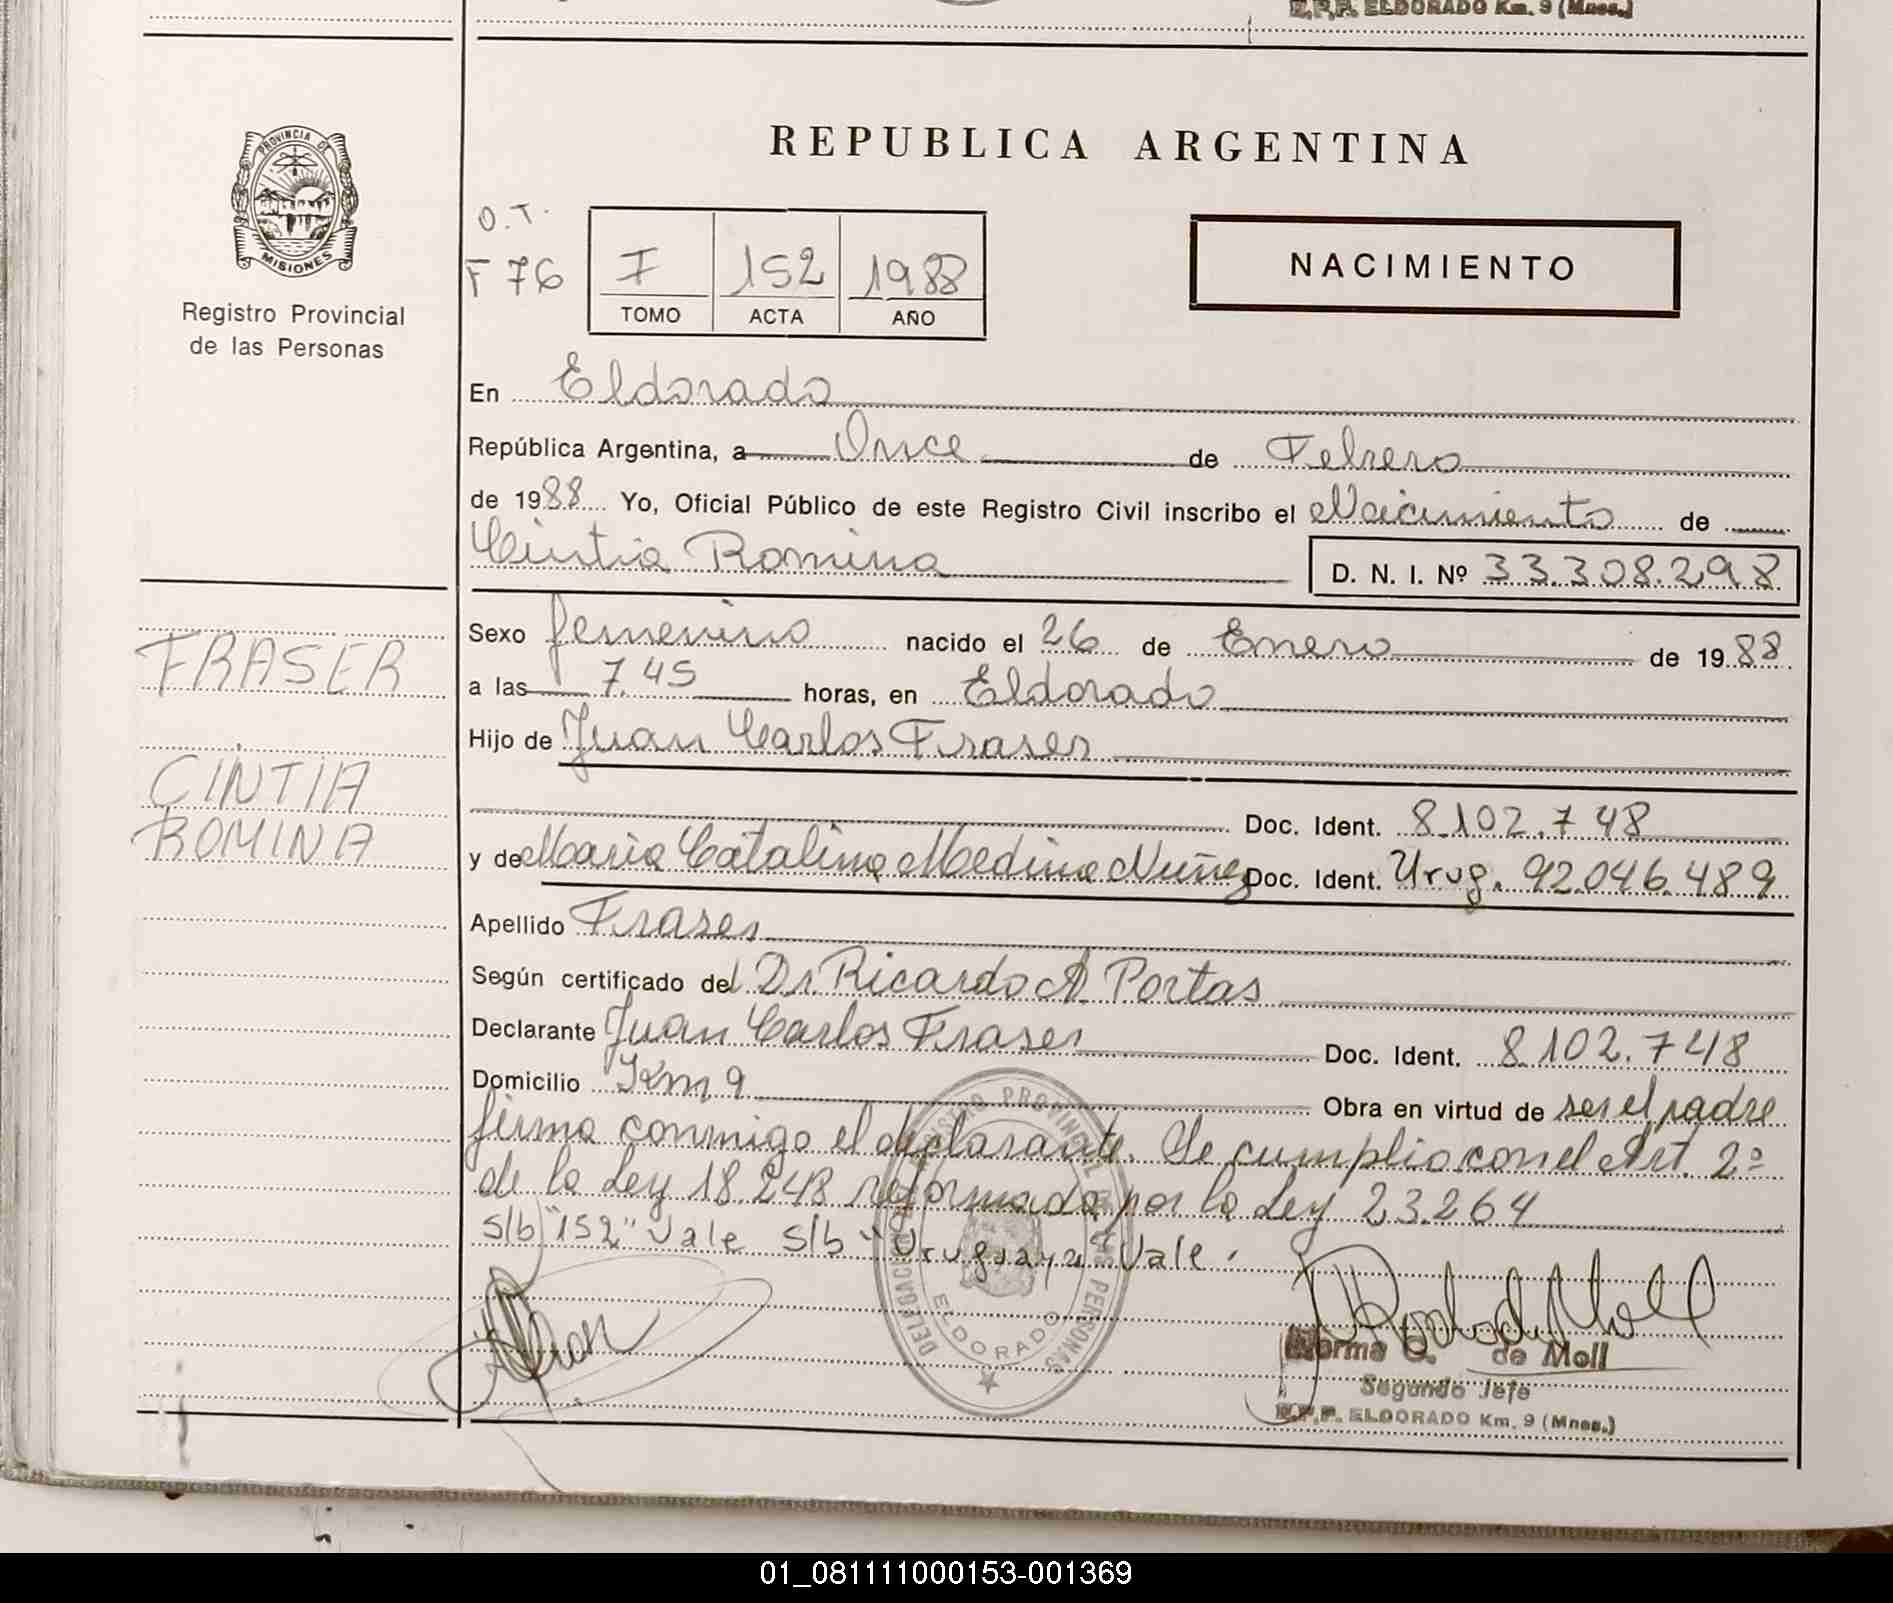 R.P.P. ELDORADO Km. 9 (Mnes.)
PROVINCIA DE
MISIONES
Registro Provincial
de las Personas
REPUBLICA ARGENTINA
O.T.
F 76
I 152 1988
TOMO ACTA AÑO
NACIMIENTO
En Eldorado
República Argentina, a Once de Febrero
de 1988 Yo, Oficial Público de este Registro Civil inscribo el Nacimiento de
Cintia Romina D. N. I. Nº 33.308.298
Sexo femenino nacido el 26 de Enero de 1988
FRASER
a las 7.45 horas, en Eldorado
Hijo de Juan Carlos Fraser
CINTIA
ROMINA
Doc. Ident. 8.102.748
y de Maria Catalina Medina Nuñez Doc. Ident. Urug. 92.046.489
Apellido Fraser
Según certificado del Dr. Ricardo A. Portas
Declarante Juan Carlos Fraser Doc. Ident. 8.102.748
Domicilio Km 9 Obra en virtud de ser el padre
firma conmigo el declarante. Se cumplio con el Art. 2º
de la Ley 18.248 reformada por la Ley 23.264
s/b "152" Vale s/b "Uruguaya" Vale.
DELEGACION REGISTRO PROVINCIAL DE LAS PERSONAS
ELDORADO
Norma C. de Moll
Segundo Jefe
R.P.P. ELDORADO Km. 9 (Mnes.)
01_081111000153-001369